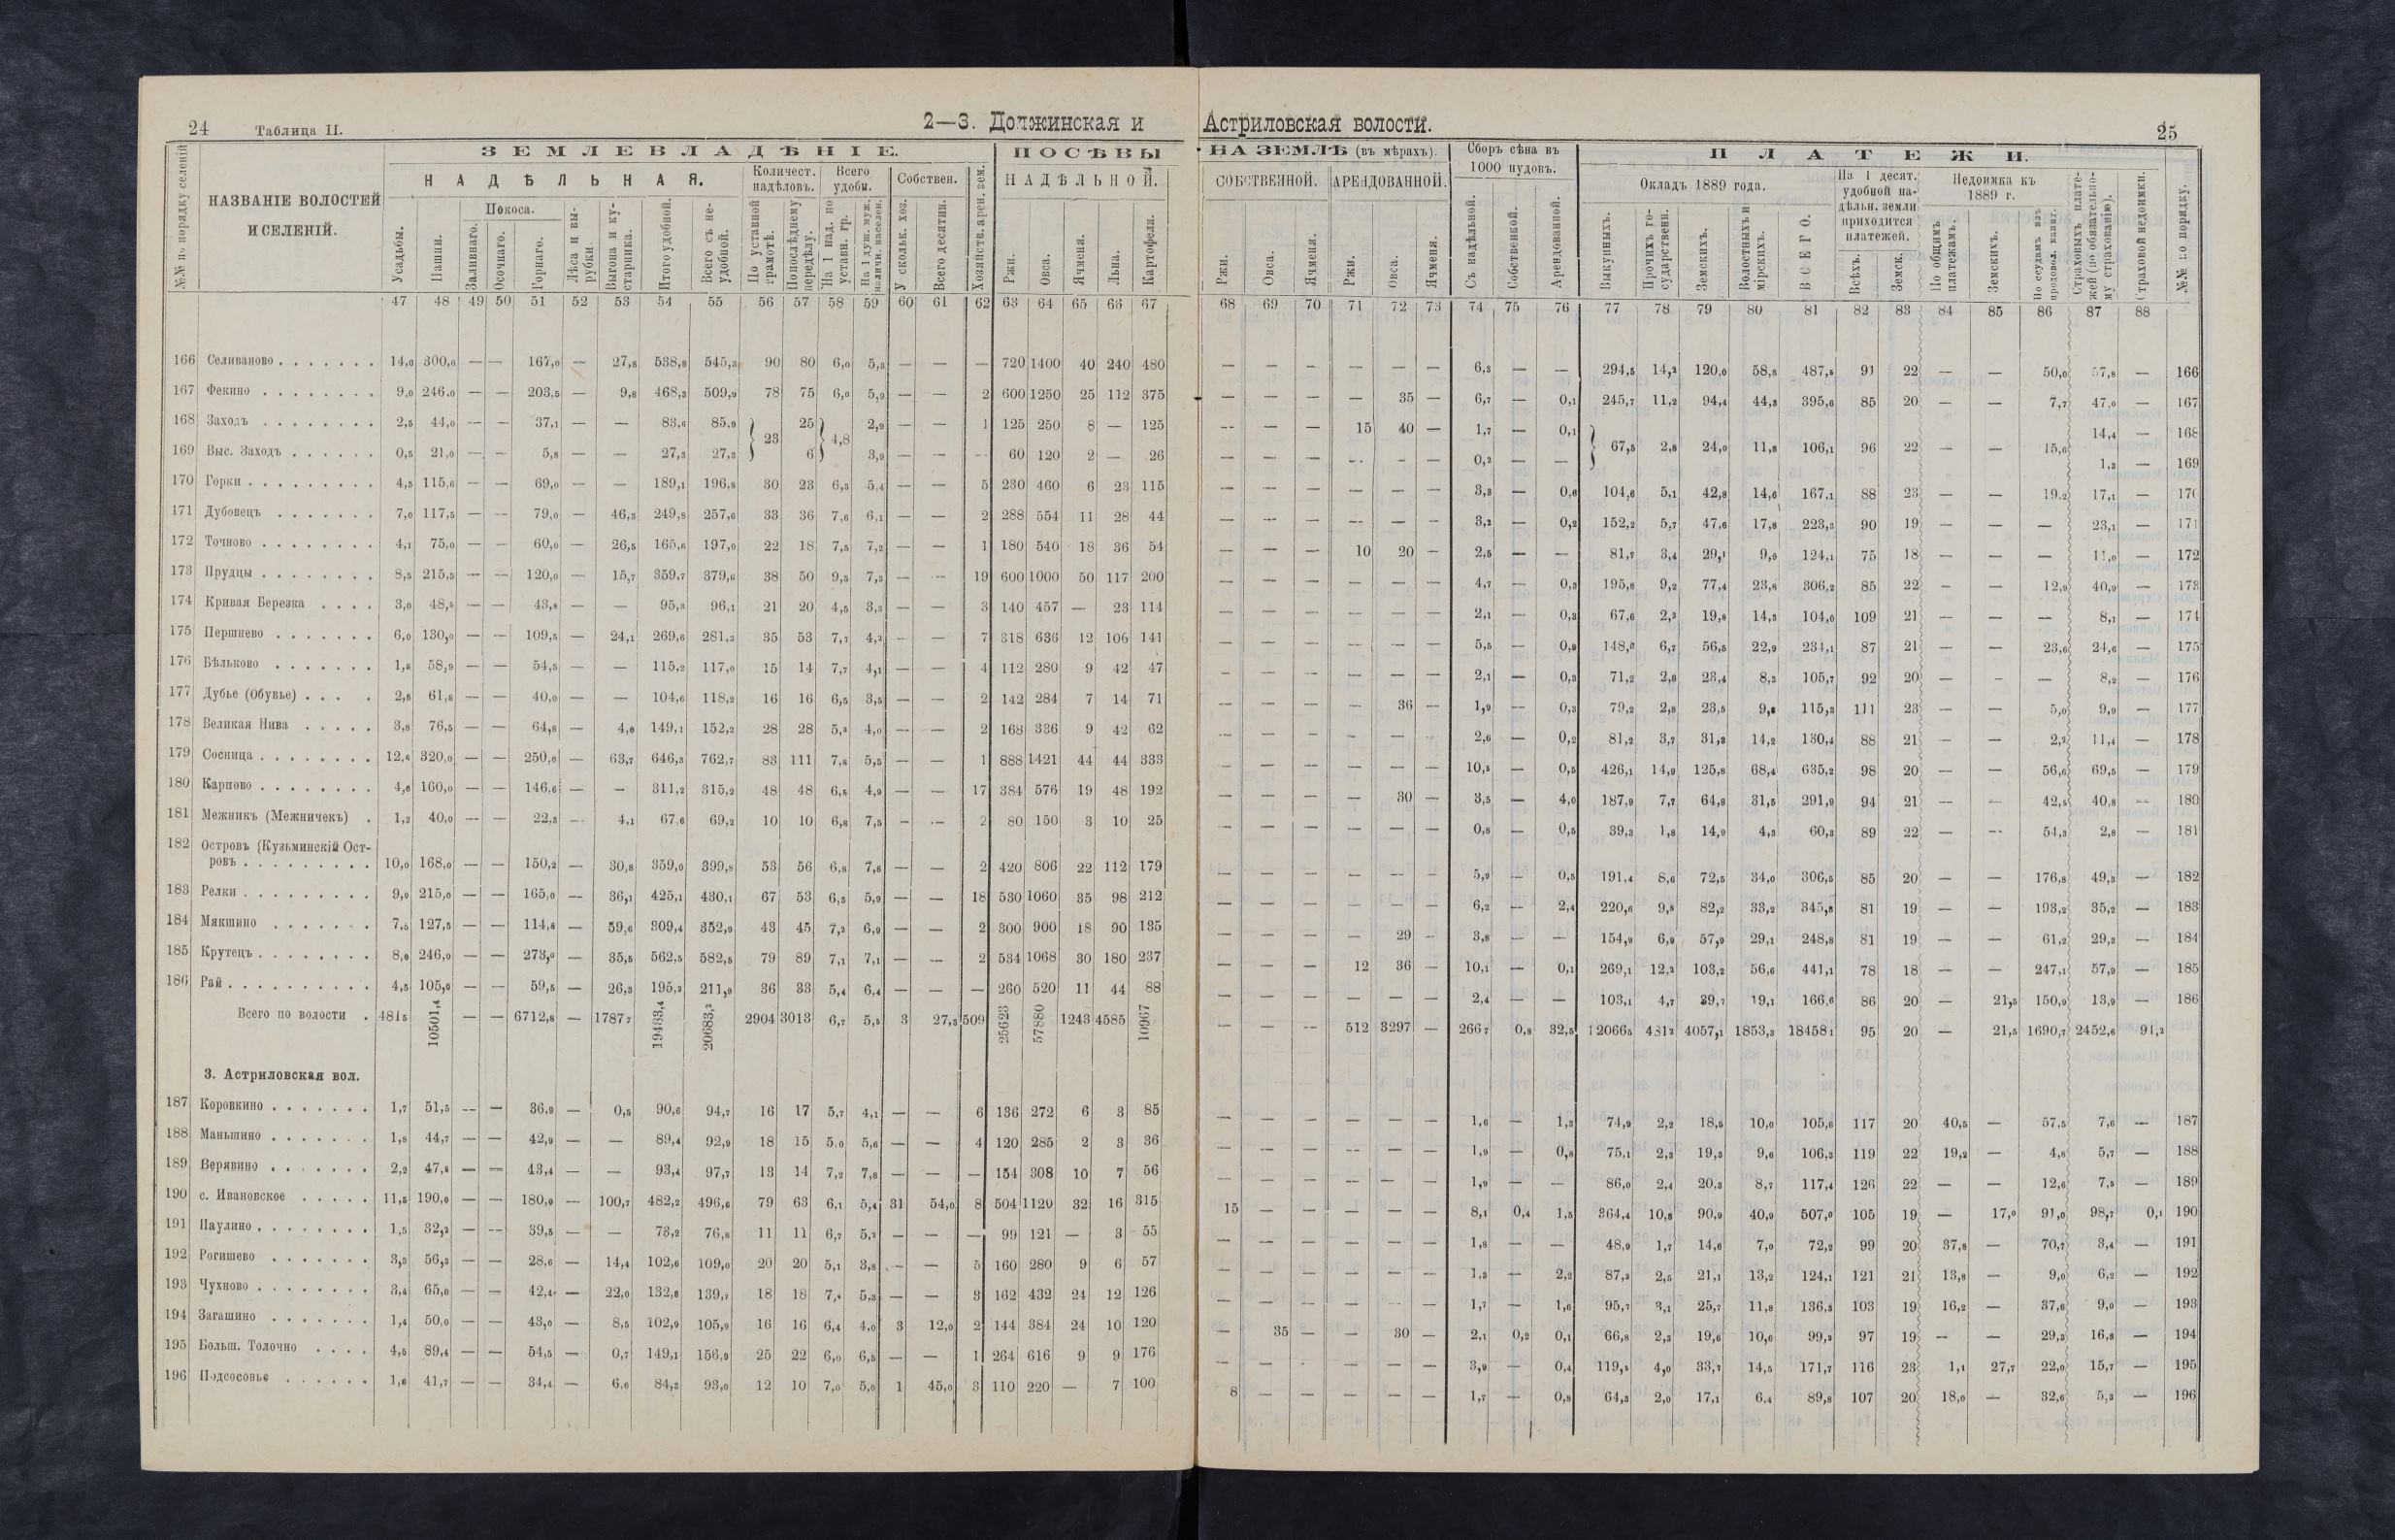 24 Таблица II. 2—3. Должинская и
Астриловская волости. 25
ЗЕМЛЕВЛАДѢНІЕ. ПОСѢВЫ
НА ЗЕМЛѢ (въ мѣрахъ). Сборъ сѣна въ 1000 пудовъ. ПЛАТЕЖИ.
№№ по порядку селеній
НАЗВАНІЕ ВОЛОСТЕЙ И СЕЛЕНІЙ.
НАДѢЛЬНАЯ. Количест. надѣловъ. Всего удобн. Собствен. Хозяйств. арен. зем. НАДѢЛЬНОЙ.
Усадьбы. Пашни. Покоса. Заливнаго. Осочнаго. Горнаго. Лѣса и вырубки. Выгона и кустарника. Итого удобной. Всего съ неудобной.
По уставной грамотѣ. По послѣднему передѣлу. На 1 над. по уставн. гр. На 1 душ. муж. наличн. населен. У скольк. хоз. Всего десятин.
Ржи. Овса. Ячменя. Льна. Картофеля.
СОБСТВЕННОЙ. АРЕНДОВАННОЙ.
Ржи. Овса. Ячменя. Ржи. Овса. Ячменя.
Съ надѣльной. Собственной. Арендованной.
Окладъ 1889 года. На 1 десят. удобной надѣльн. земли приходится платежей. Недоимка къ 1889 г.
Выкупныхъ. Прочихъ государственн. Земскихъ. Волостныхъ и мірскихъ. ВСЕГО. Всѣхъ. Земск. По общимъ платежамъ. Земскихъ. По ссудамъ изъ продовол. капит. Страховыхъ платежей (по обязательному страхованію). Страховой недоимки. №№ по порядку.
47 48 49 50 51 52 53 54 55 56 57 58 59 60 61 62 63 64 65 66 67
68 69 70 71 72 73 74 75 76 77 78 79 80 81 82 83 84 85 86 87 88
166 Селиваново 14,0 300,0 — — 167,0 — 27,8 538,8 545,3 90 80 6,0 5,3 — — — 720 1400 40 240 480
— — — — — — 6,3 — — 294,5 14,2 120,0 58,8 487,5 91 22 — — 50,0 57,8 — 166
167 Фекино 9,0 246,0 — — 203,5 — 9,8 468,3 509,9 78 75 6,0 5,9 — — 2 600 1250 25 112 375
— — — — 35 — 6,7 — 0,1 245,7 11,2 94,4 44,3 395,6 85 20 — — 7,7 47,0 — 167
168 Заходъ 2,5 44,0 — — 37,1 — — 83,6 85,9 23 25 4,8 2,9 — — 1 125 250 8 — 125
— — — 15 40 — 1,7 — 0,1 67,5 2,8 24,0 11,8 106,1 96 22 — — 15,0 14,4 — 168
169 Выс. Заходъ 0,5 21,0 — — 5,8 — — 27,3 27,3 6 3,0 — — — 60 120 2 — 26
— — — — — — 0,2 — — 1,3 — 169
170 Горки 4,5 115,6 — — 69,0 — — 189,1 196,8 30 23 6,3 5,4 — — 5 230 460 6 23 115
— — — — — — 3,3 — 0,6 104,6 5,1 42,8 14,6 167,1 88 23 — — 19,2 17,1 — 170
171 Дубовецъ 7,0 117,5 — — 79,0 — 46,3 249,8 257,6 33 36 7,6 6,1 — — 2 288 554 11 28 44
— — — — — — 3,2 — 0,2 152,2 5,7 47,6 17,8 223,3 90 19 — — — 23,1 — 171
172 Точново 4,1 75,0 — — 60,0 — 26,5 165,6 197,0 22 18 7,5 7,2 — — 1 180 540 18 36 54
— — — 10 20 — 2,5 — — 81,7 3,4 29,1 9,9 124,1 75 18 — — — 11,0 — 172
173 Прудцы 8,5 215,5 — — 120,0 — 15,7 359,7 379,6 38 50 9,5 7,3 — — 19 600 1000 50 117 200
— — — — — — 4,7 — 0,3 195,8 9,2 77,4 23,8 306,2 85 22 — — 12,9 40,9 — 173
174 Кривая Березка 3,0 48,5 — — 43,8 — — 95,3 96,1 21 20 4,5 3,3 — — 3 140 457 — 23 114
— — — — — — 2,1 — 0,3 67,6 2,3 19,8 14,3 104,0 109 21 — — — 8,1 — 174
175 Першнево 6,0 130,0 — — 109,5 — 24,1 269,6 281,3 35 53 7,7 4,2 — — 7 318 636 12 106 141
— — — — — — 5,5 — 0,8 148,0 6,7 56,5 22,9 234,1 87 21 — — 23,6 24,6 — 175
176 Бѣльково 1,8 58,9 — — 54,5 — — 115,2 117,0 15 14 7,7 4,1 — — 4 112 280 9 42 47
— — — — — — 2,1 — 0,3 71,2 2,8 23,4 8,3 105,7 92 20 — — — 8,2 — 176
177 Дубье (Обувье) 2,8 61,8 — — 40,0 — — 104,6 118,2 16 16 6,5 3,5 — — 2 142 284 7 14 71
— — — — 36 — 1,9 — 0,3 79,2 2,8 23,5 9,8 115,3 111 23 — — 5,0 9,9 — 177
178 Великая Нива 3,8 76,5 — — 64,8 — 4,0 149,1 152,2 28 28 5,3 4,0 — — 2 168 336 9 42 62
— — — — — — 2,6 — 0,2 81,2 3,7 31,3 14,2 130,4 88 21 — — 2,2 11,4 — 178
179 Сосница 12,6 320,0 — — 250,0 — 63,7 646,3 762,7 83 111 7,8 5,5 — — 1 888 1421 44 44 333
— — — — — — 10,5 — 0,5 426,1 14,9 125,8 68,4 635,2 98 20 — — 56,6 69,5 — 179
180 Карпово 4,6 160,0 — — 146,6 — — 311,2 315,2 48 48 6,5 4,9 — — 17 384 576 19 48 192
— — — — 30 — 3,5 — 4,0 187,9 7,7 64,8 31,5 291,9 94 21 — — 42,8 40,8 — 180
181 Межникъ (Межничекъ) 1,2 40,0 — — 22,3 — 4,1 67,6 69,2 10 10 6,8 7,5 — — 2 80 150 3 10 25
— — — — — — 0,8 — 0,5 39,3 1,8 14,9 4,3 60,3 89 22 — — 54,3 2,8 — 181
182 Островъ {Кузьминскій Ост-
ровъ 10,0 168,0 — — 150,2 — 30,8 359,0 399,8 53 56 6,8 7,8 — — 2 420 806 22 112 179
— — — — — — 5,9 — 0,5 191,4 8,6 72,5 34,0 306,5 85 20 — — 176,8 49,3 — 182
183 Релки 9,0 215,0 — — 165,0 — 36,1 425,1 430,1 67 53 6,3 5,9 — — 18 530 1060 35 98 212
— — — — — — 6,2 — 2,4 220,6 9,5 82,2 33,2 345,5 81 19 — — 193,2 35,2 — 183
184 Мякшино 7,5 127,5 — — 114,8 — 59,6 309,4 352,9 43 45 7,2 6,9 — — 2 300 900 18 90 135
— — — — 29 — 3,8 — — 154,9 6,9 57,9 29,1 248,8 81 19 — — 61,2 29,3 — 184
185 Крутецъ 8,0 246,0 — — 273,0 — 35,5 562,5 582,5 79 89 7,1 7,1 — — 2 534 1068 30 180 237
— — — 12 36 — 10,1 — 0,1 269,1 12,2 103,2 56,6 441,1 78 18 — — 247,1 57,9 — 185
186 Рай 4,5 105,0 — — 59,5 — 26,3 195,3 211,9 36 33 5,4 6,4 — — — 260 520 11 44 88
— — — — — — 2,4 — — 103,1 4,7 39,7 19,1 166,6 86 20 — 21,5 150,9 13,9 — 186
Всего по волости 481,5 10501,4 — — 6712,8 — 1787,7 19483,4 20683,3 2904 3013 6,7 5,5 3 27,3 509 25623 57880 1243 4585 10967
— — — 512 3297 — 266,7 0,8 32,5 12066,5 481,2 4057,1 1853,3 18458,1 95 20 — 21,5 1690,7 2452,6 91,2
3. Астриловская вол.
187 Коровкино 1,7 51,5 — — 36,9 — 0,5 90,6 94,7 16 17 5,7 4,1 — — 6 136 272 6 3 85
— — — — — — 1,6 — 1,3 74,9 2,2 18,5 10,0 105,6 117 20 40,5 — 57,5 7,6 — 187
188 Маньшино 1,8 44,7 — — 42,9 — — 89,4 92,9 18 15 5,0 5,6 — — 4 120 285 2 3 36
— — — — — — 1,9 — 0,8 75,1 2,3 19,3 9,6 106,3 119 22 19,2 — 4,8 5,7 — 188
189 Верявино 2,2 47,8 — — 43,4 — — 93,4 97,7 13 14 7,2 7,8 — — — 154 308 10 7 56
— — — — — — 1,9 — — 86,0 2,4 20,3 8,7 117,4 126 22 — — 12,6 7,5 — 189
190 с. Ивановское 11,5 190,0 — — 180,0 — 100,7 482,2 496,6 79 63 6,1 5,4 31 54,0 8 504 1120 32 16 315
15 — — — — — 8,1 0,4 1,5 364,4 10,8 90,9 40,9 507,0 105 19 — 17,0 91,0 98,7 0,1 190
191 Паулино 1,5 32,2 — — 39,5 — — 73,2 76,8 11 11 6,7 5,2 — — — 99 121 — 3 55
— — — — — — 1,8 — — 48,9 1,7 14,6 7,0 72,2 99 20 37,8 — 70,7 3,4 — 191
192 Рогишево 3,3 56,3 — — 28,6 — 14,4 102,6 109,0 20 20 5,1 3,8 — — 5 160 280 9 6 57
— — — — — — 1,3 — 2,2 87,3 2,5 21,1 13,2 124,1 121 21 13,8 — 9,0 6,2 — 192
193 Чухново 3,4 65,0 — — 42,4 — 22,0 132,8 139,7 18 18 7,4 5,3 — — 3 162 432 24 12 126
— — — — — — 1,7 — 1,6 95,7 3,1 25,7 11,8 136,3 103 19 16,2 — 37,6 9,0 — 193
194 Загашино 1,4 50,0 — — 43,0 — 8,5 102,9 105,9 16 16 6,4 4,0 3 12,0 2 144 384 24 10 120
— 35 — — 30 — 2,1 0,2 0,1 66,8 2,3 19,6 10,6 99,3 97 19 — — 29,3 16,8 — 194
195 Больш. Толочно 4,5 89,4 — — 54,5 — 0,7 149,1 156,9 25 22 6,0 6,5 — — 1 264 616 9 9 176
— — — — — — 3,9 — 0,4 119,5 4,0 33,7 14,5 171,7 116 23 1,1 27,7 22,0 15,7 — 195
196 Подсосовье 1,6 41,7 — — 34,4 — 6,6 84,3 93,0 12 10 7,0 5,6 1 45,0 3 110 220 — 7 100
8 — — — — — 1,7 — 0,8 64,3 2,0 17,1 6,4 89,8 107 20 18,0 — 32,6 5,3 — 196